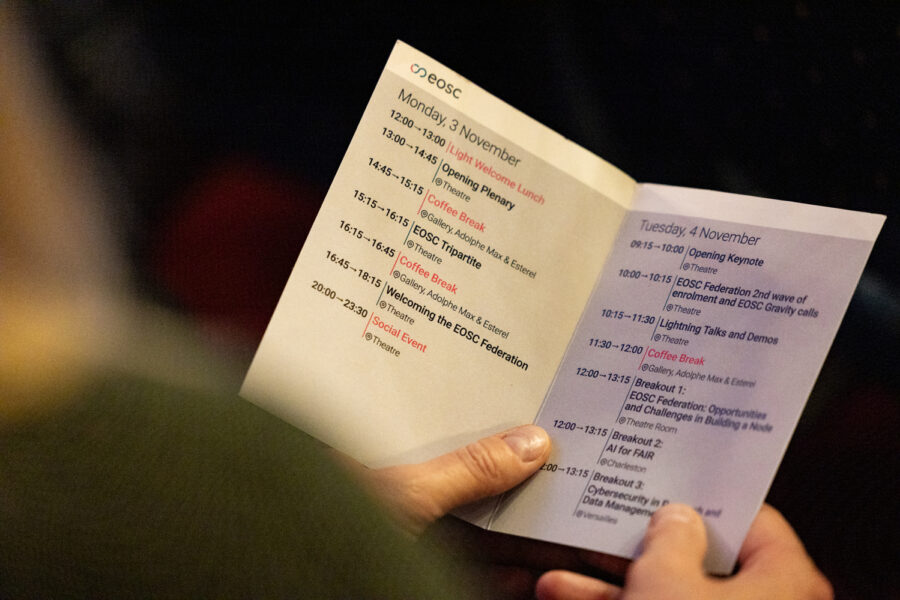 eosc
Monday, 3 November
12:00→13:00 Light Welcome Lunch
13:00→14:45 Opening Plenary
@Theatre
14:45→15:15 Coffee Break
@Gallery, Adolphe Max & Esterel
15:15→16:15 EOSC Tripartite
@Theatre
16:15→16:45 Coffee Break
@Gallery, Adolphe Max & Esterel
16:45→18:15 Welcoming the EOSC Federation
@Theatre
20:00→23:30 Social Event
@Theatre
Tuesday, 4 November
09:15→10:00 Opening Keynote
@Theatre
10:00→10:15 EOSC Federation 2nd wave of
enrolment and EOSC Gravity calls
@Theatre
10:15→11:30 Lightning Talks and Demos
@Theatre
11:30→12:00 Coffee Break
@Gallery, Adolphe Max & Esterel
12:00→13:15 Breakout 1:
EOSC Federation: Opportunities
and Challenges in Building a Node
@Theatre Room
12:00→13:15 Breakout 2:
AI for FAIR
@Charleston
2:00→13:15 Breakout 3:
Cybersecurity in and
Data
@Versailles